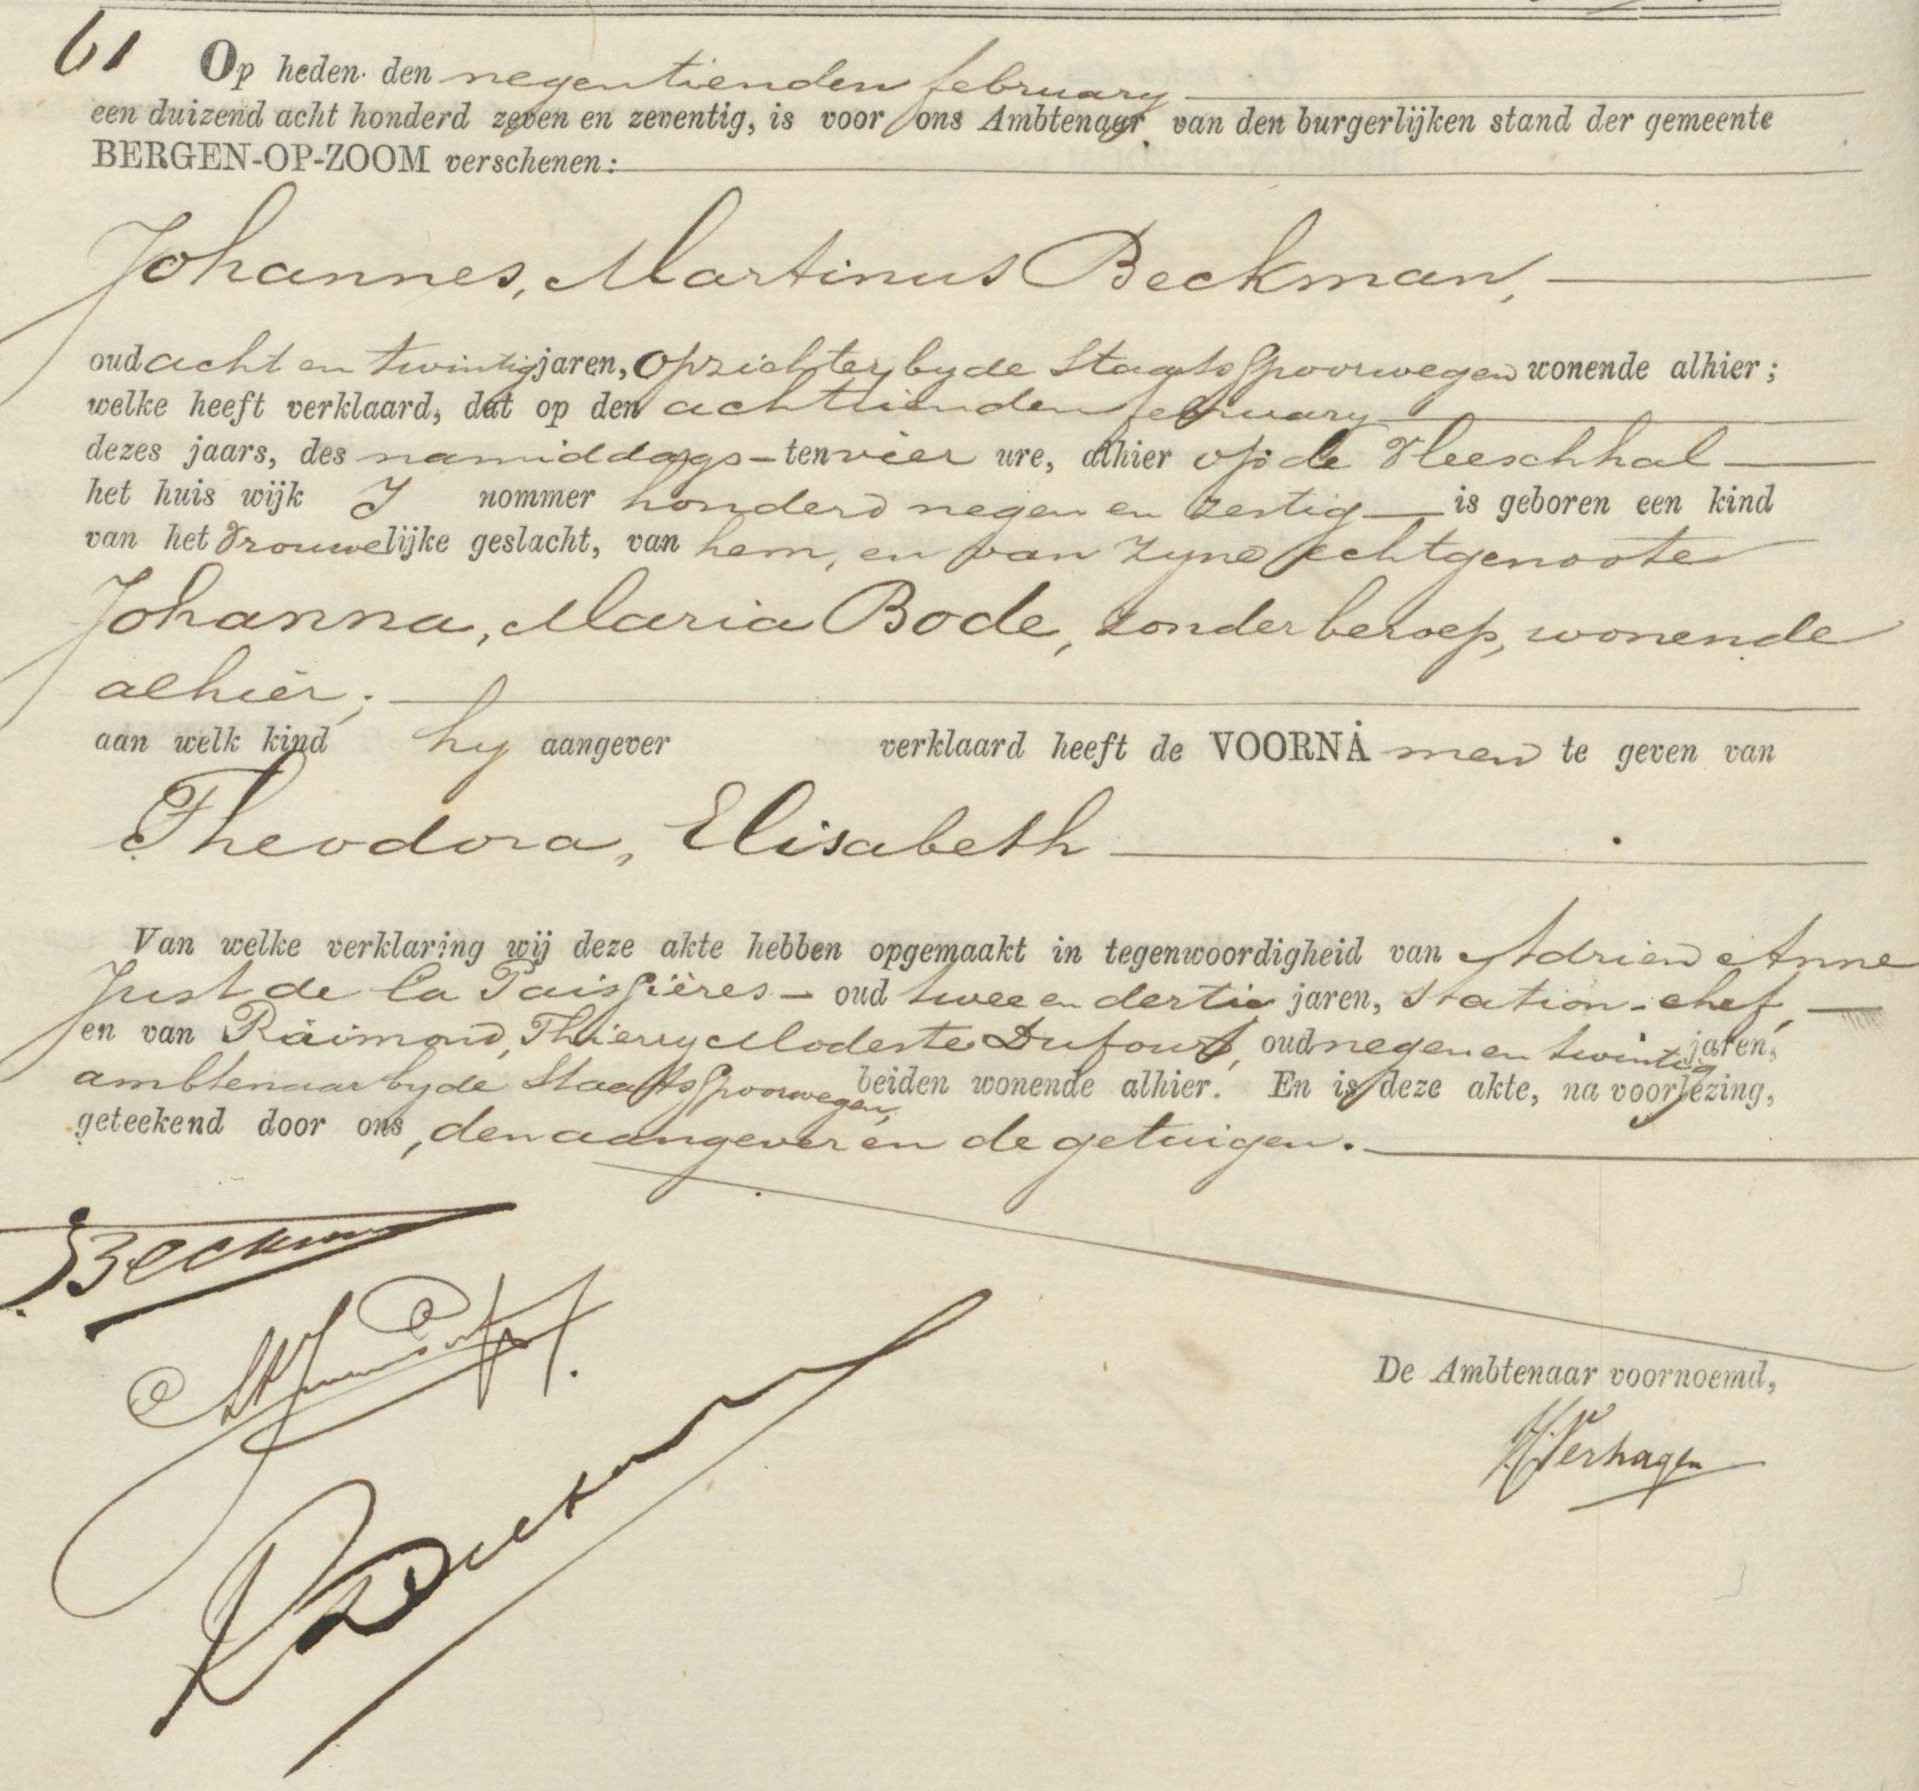 61 Op heden den negentienden february
een duizend acht honderd zeven en zeventig, is voor ons Ambtenaar van den burgerlijken stand der gemeente
BERGEN-OP-ZOOM verschenen:
Johannes, Martinus Beckman,
oud acht en twintig jaren, opzichter by de Staats Spoorwegen wonende alhier;
welke heeft verklaard, dat op den achttienden february
dezes jaars, des namiddags - ten vier ure, alhier op de Vleeschhal
het huis wijk J nommer honderd negen en zestig is geboren een kind
van het vrouwelijke geslacht, van hem, en van zyne echtgenoote
Johanna, Maria Bode, zonder beroep, wonende
alhier;
aan welk kind hy aangever verklaard heeft de VOORNAmen te geven van
Theodora, Elisabeth
Van welke verklaring wij deze akte hebben opgemaakt in tegenwoordigheid van Adrien Anne
Just de la - oud twee en dertig jaren, station-chef,
en van Raimond, Thierry Modeste Dufour, oud negen en twintig jaren,
ambtenaar by de Staats Spoorwegen, beiden wonende alhier. En is deze akte, na voorlezing,
geteekend door ons, den aangever en de getuigen.
Beckman
De Ambtenaar voornoemd,
Verhagen